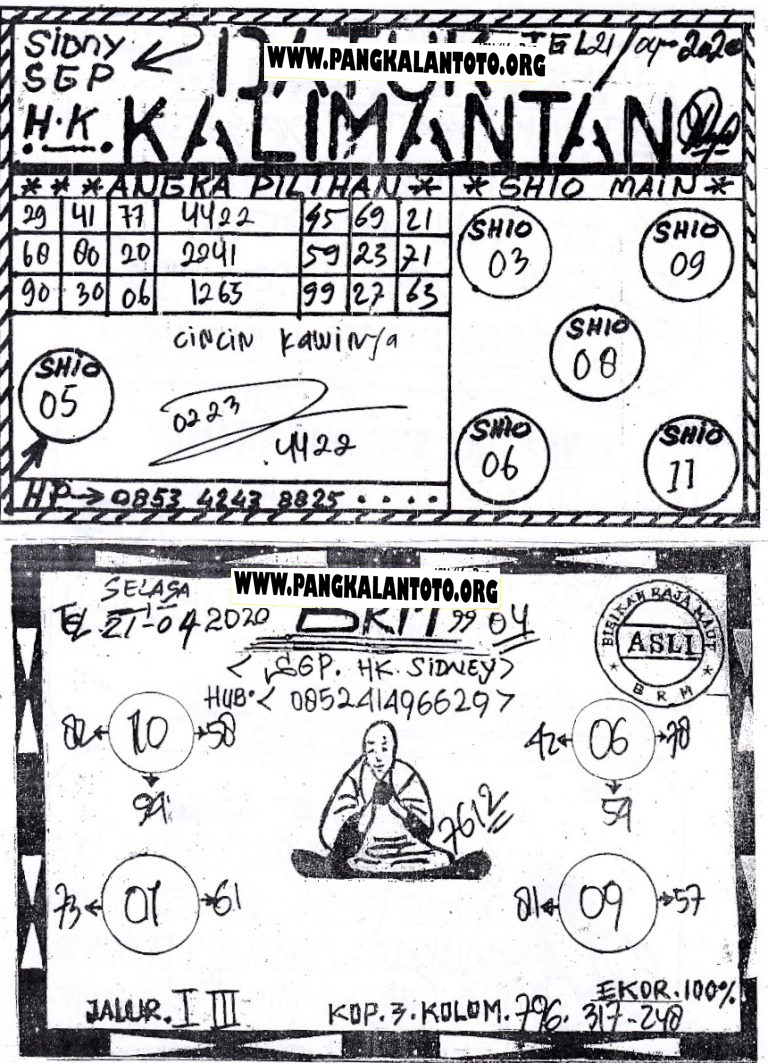 SiDNY
SGP
H.K.
WWW.PANGKALANTOTO.ORG
TGL 21/04-2020
KALIMANTAN
* * * ANGKA PILIHAN *
29 41 77 4422 45 69 21
60 00 20 2241 59 23 71
90 30 06 1265 99 27 63
CiNCiN KAWiNYA
SHiO
05
0223
.4422
HP→ 0853 4243 8825 . . . .
* SHIO MAIN *
SHIO
03
SHIO
09
SHIO
08
SHIO
06
SHIO
11
SELASA
WWW.PANGKALANTOTO.ORG
TGL 21-04 2020
BRM 99 04
< SGP. HK. SiDNEY >
HUB. < 085241496629 >
BISIKAN RAJA MAUT
ASLI
* B R M *
82 10 58
94
42 06 78
54
7612
73 01 61
81 09 57
JALUR. I III
KOP. 3. KOLOM. 796. 317-248
EKOR. 100%